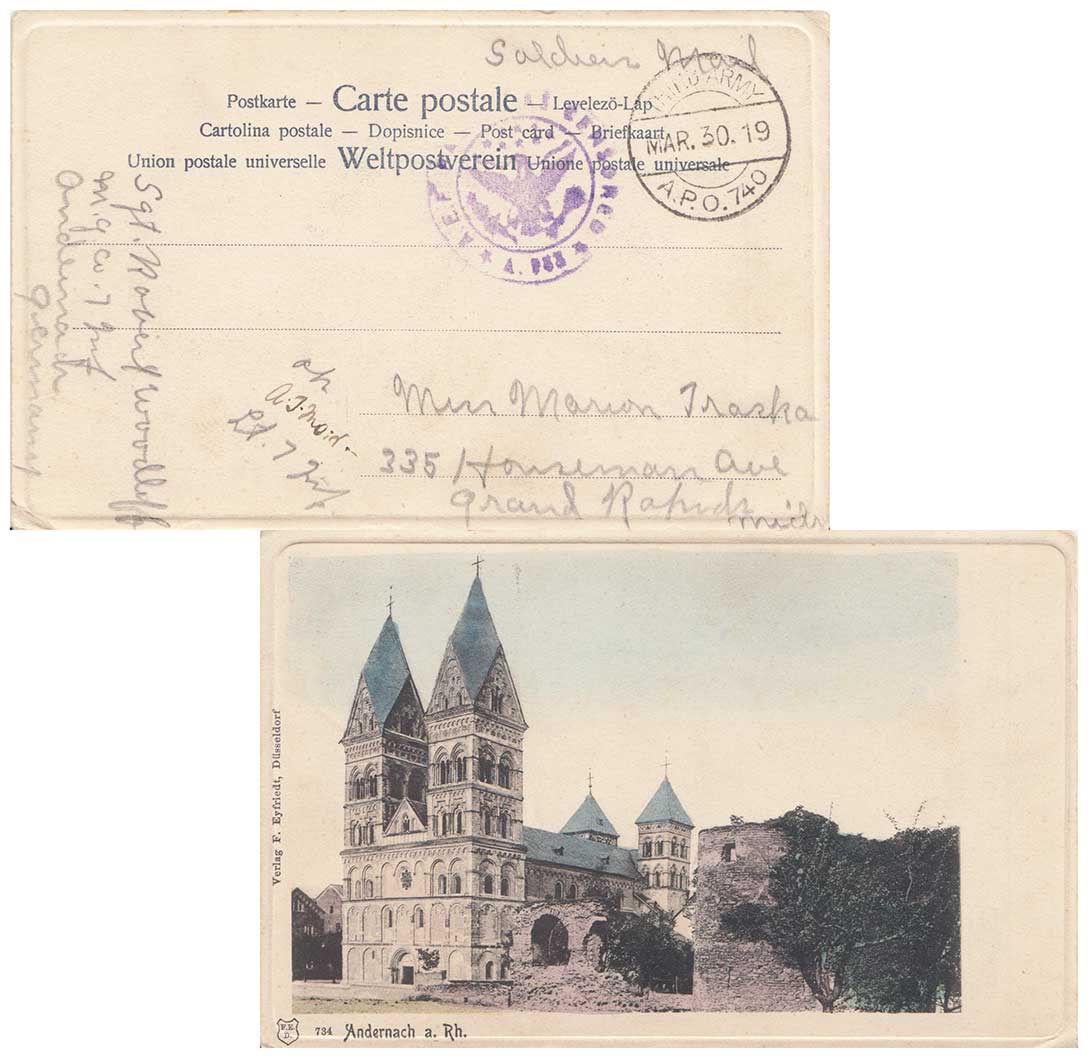 Soldiers Mail
Postkarte — Carte postale — Levelezö-Lap
Cartolina postale — Dopisnice — Post card — Briefkaart
Union postale universelle Weltpostverein Unione postale universale
ARMY
MAR. 30. 19
A.P.O. 740
A.E.F. CENSORED
A.
Sgt. Robert Woodleff
M.G. Co. 7 Inf
Andernach
Germany
ok
Lt. 7 Inf.
Miss Marion Traska
335 Houseman Ave
Grand Rapids
Mich
Verlag F. Eyfriedt, Düsseldorf
F.E.
D.
734 Andernach a. Rh.